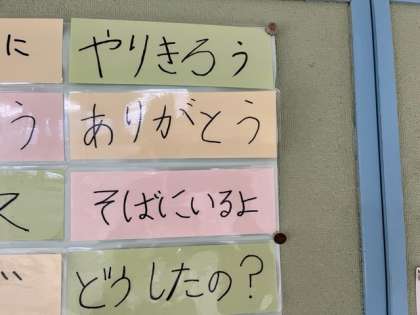 に
やりきろう
う
ありがとう
ス
そばにいるよ
どうしたの？